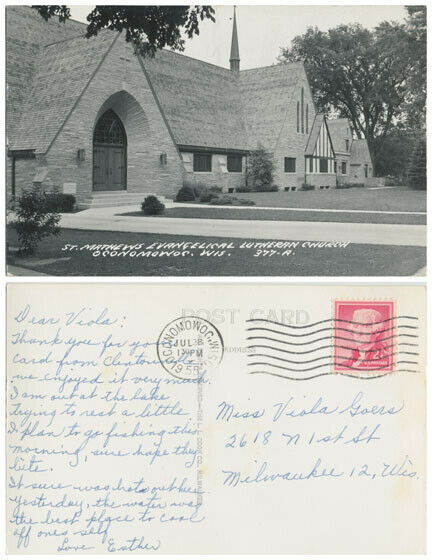 ST. MATHEWS EVANGELICAL LUTHERAN CHURCH
OCONOMOWOC, WIS. 377-A.
POST CARD
ADDRESS
OCONOMOWOC, WIS.
JUL 28
1 PM
1955
2¢
Dear Viola:
Thank you for your
card from Clintonville
we enjoyed it very much.
I am out at the lake
trying to rest a little.
I plan to go fishing this
morning, sure hope they
bite.
It sure was hot out here
yesterday, the water was
the best place to cool
off ones self.
Love Esther
Miss Viola Goers
2618 N 1st St
Milwaukee 12, Wis.